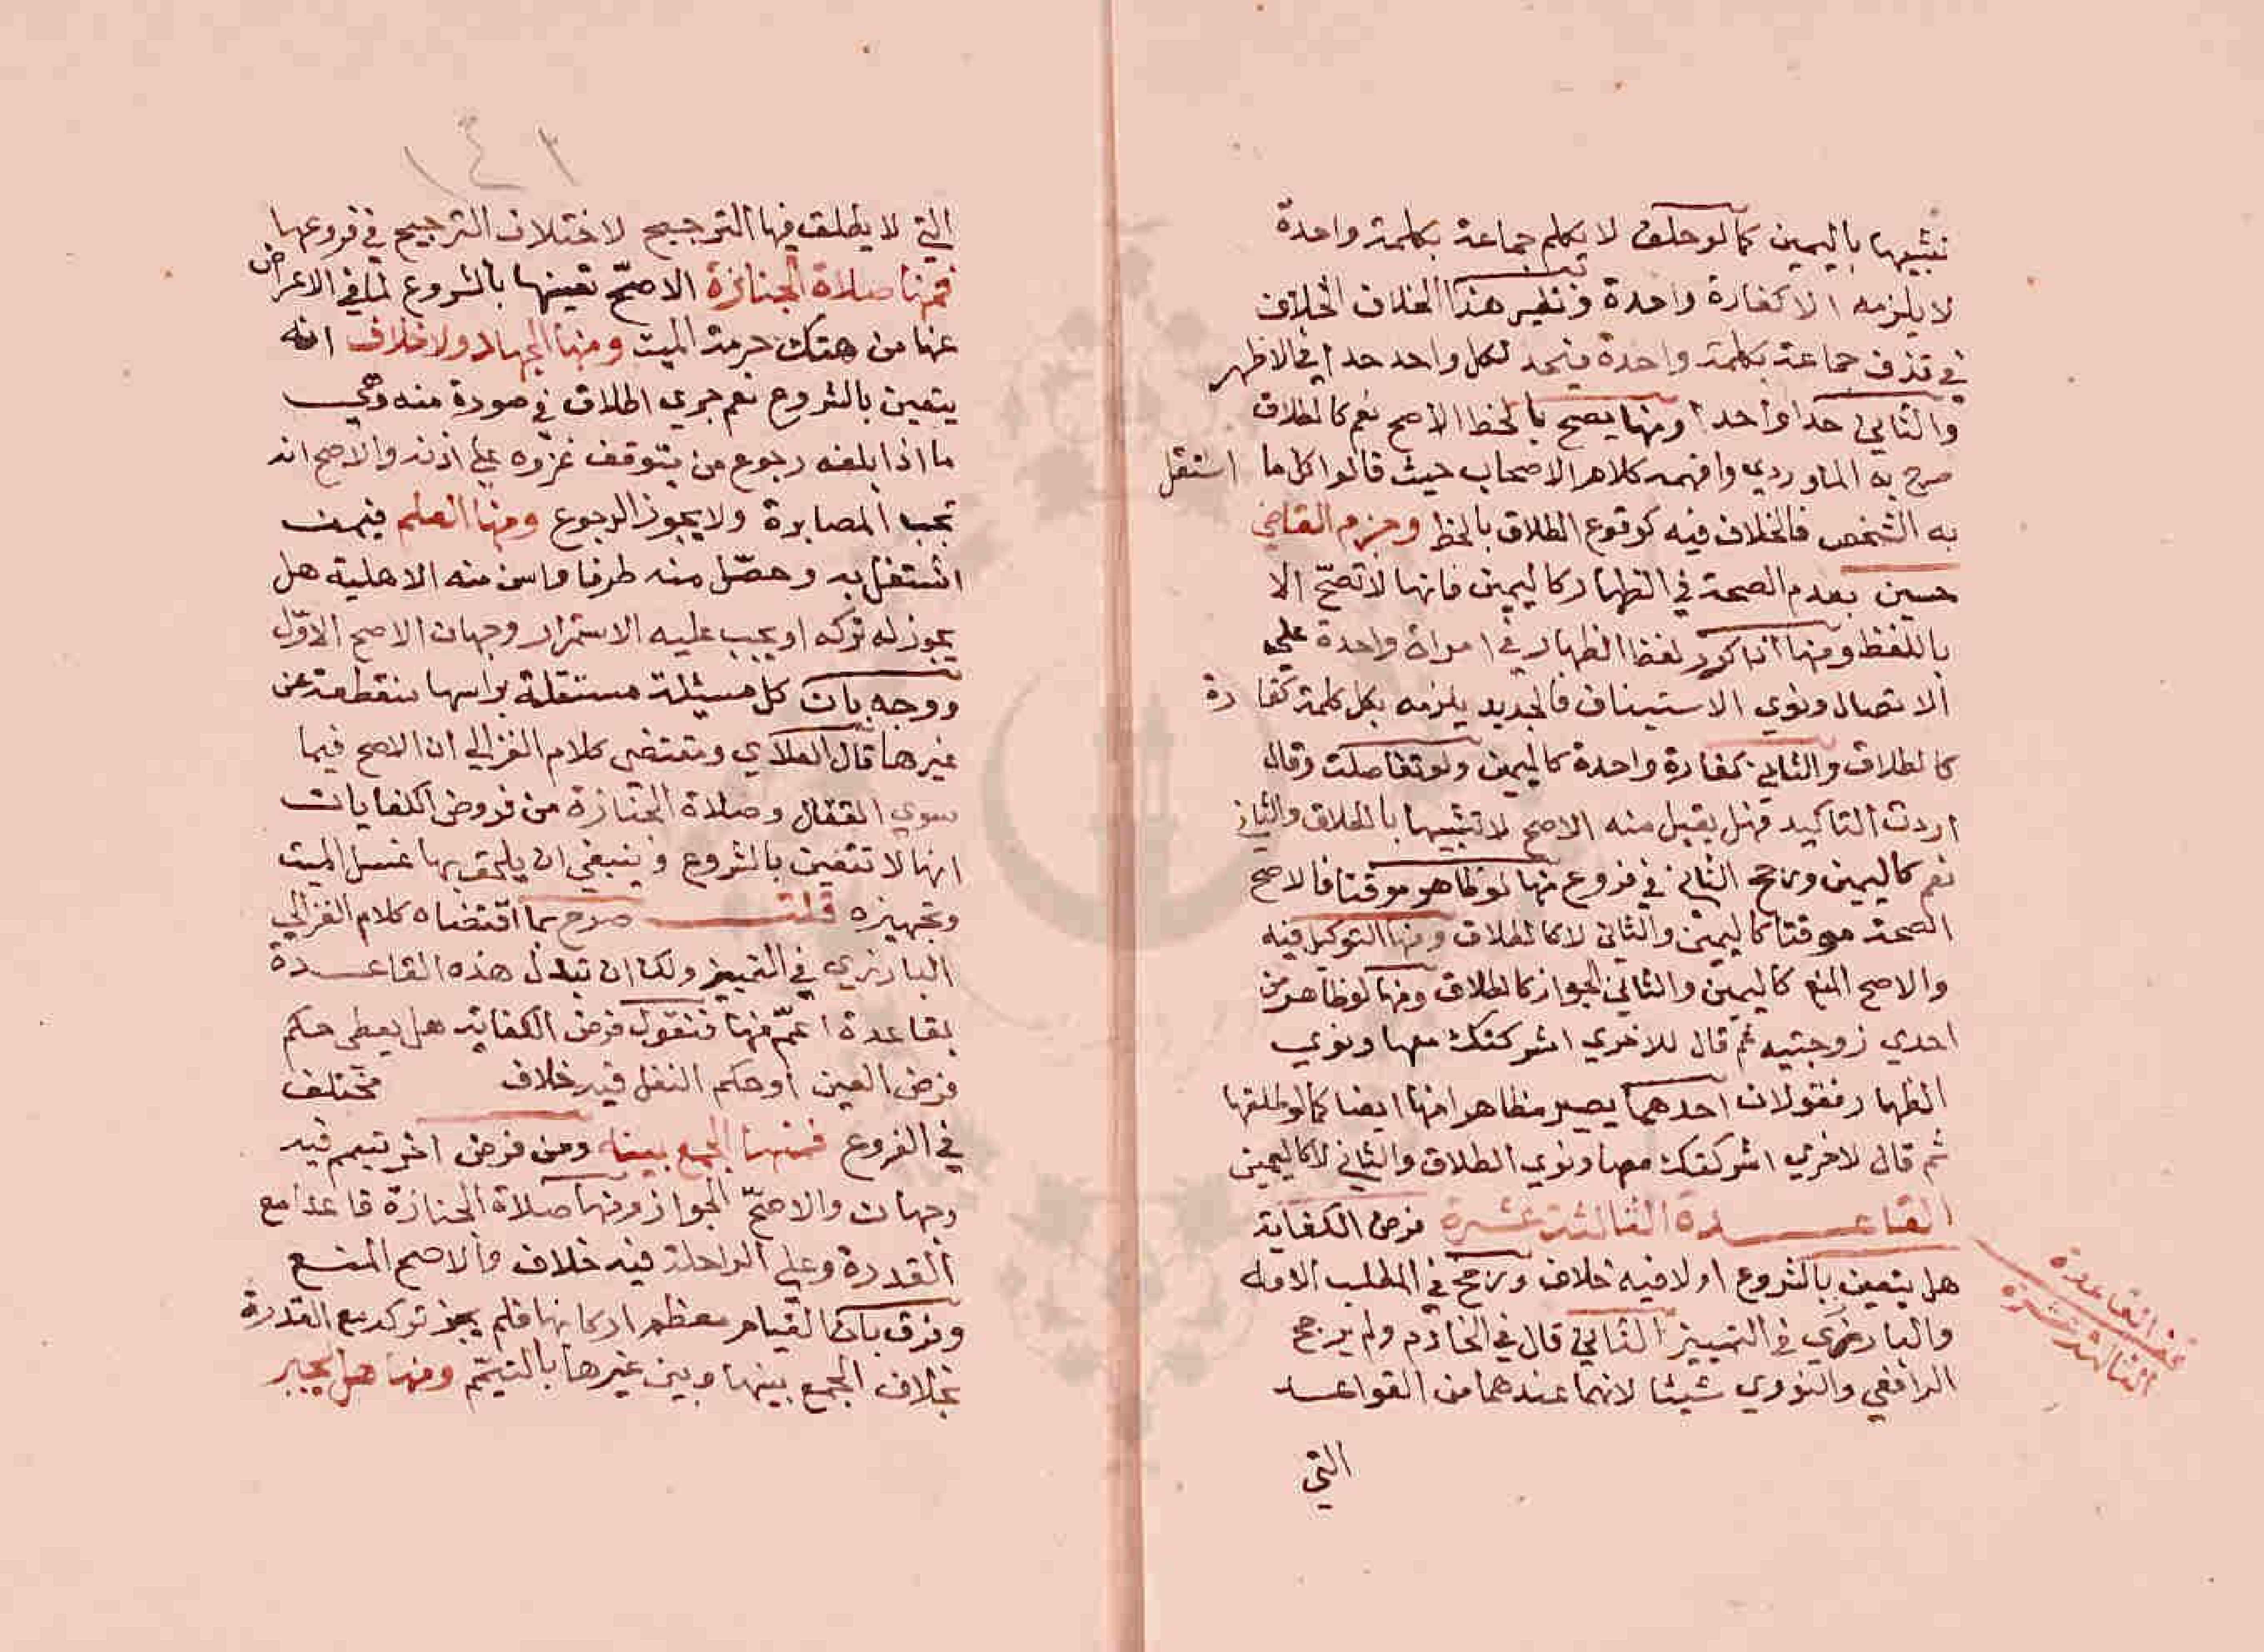 تشبيها باليمين كما لو حلف لا يكلم جماعة بكلمة واحدة
لا يلزمه الا كفارة واحدة ونظير هذا الخلاف الخلاف
في قذف جماعة بكلمة واحدة فيحد لكل واحد حدا في الاظهر
والثاني حدا واحدا ومنها يصح بالخط الاصح نعم كالطلاق
صرح به الماوردي وافهمه كلام الاصحاب حيث قالوا كل ما استقل
به الشخص فالخلاف فيه كوقوع الطلاق بالخط وجزم القاضي
حسين بعدم الصحة في الظهار كاليمين فانها لا تصح الا
باللفظ ومنها اذا كرر لفظ الظهار في امراة واحدة علي
الاتصال ونوي الاستيناف فالجديد يلزمه بكل كلمة كفارة
كالطلاق والثاني كفارة واحدة كاليمين ولو تفاصلت وقال
اردت التاكيد فهل يقبل منه الاصح لا تشبيها بالطلاق والثاني
نعم كاليمين ورجح الثاني في فروع منها لو ظاهر موقتا فالاصح
الصحة موقتا كاليمين والثاني لا كالطلاق ومنها التوكيل فيه
والاصح المنع كاليمين والثاني الجواز كالطلاق ومنها لو ظاهر من
احدي زوجتيه ثم قال للاخري اشركتك معها ونوي
الظهار فقولان احدهما يصير مظاهرا منها ايضا كما لو طلقها
ثم قال لاخري اشركتك معها ونوي الطلاق والثاني لا كاليمين
القاعدة الثالثة عشرة فرض الكفاية
هل يتعين بالشروع اولا فيه خلاف ورجح في المطلب الاول
والبارزي في التمييز الثاني قال في الخادم ولم يرجح
الرافعي والنووي شيئا لانهما عندهما من القواعد
التي
قف القاعدة
الثالثة عشرة
١٤٢
التي لا يطلق فيها الترجيح لاختلاف الترجيح في فروعها
فمنها صلاة الجنازة الاصح تعينها بالشروع لما في الاعراض
عنها من هتك حرمة الميت ومنها الجهاد ولا خلاف انه
يتعين بالشروع نعم جري الخلاف في صورة منه وهي
ما اذا بلغه رجوع من يتوقف غزوه علي اذنه والاصح انه
تجب المصابرة ولا يجوز الرجوع ومنها العلم فيمن
اشتغل به وحصل منه طرفا وانس منه الاهلية هل
يجوز له تركه او يجب عليه الاستمرار وجهان الاصح الاول
ووجه بان كل مسئلة مستقلة براسها منقطعة عن
غيرها قال العلاي ومقتضي كلام الغزالي ان الاصح فيما
سوي القتال وصلاة الجنازة من فروض الكفايات
انها لا تتعين بالشروع وينبغي ان يلحق بها غسل الميت
وتجهيزه قلت صرح بما اقتضاه كلام الغزالي
البارزي في التمييز ولك ان تبدل هذه القاعدة
بقاعدة اعم منها فنقول فرض الكفاية هل يعطي حكم
فرض العين او حكم النفل فيه خلاف مختلف
في الفروع فمنها الجمع بينه وبين فرض اخر بتيمم فيه
وجهان والاصح الجواز ومنها صلاة الجنازة قاعدا مع
القدرة وعلي الراحلة فيه خلاف والاصح المنع
وفرق بان القيام معظم اركانها فلم يجز تركه مع القدرة
بخلاف الجمع بينها وبين غيرها بالتيمم ومنها هل يجبر